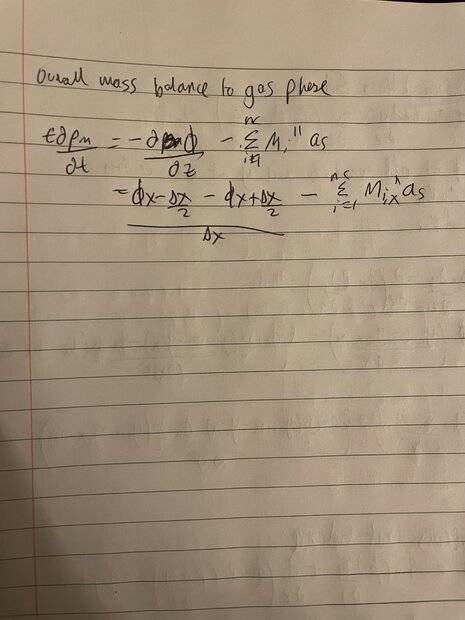 Overall mass balance to gas phase
ε∂ρm/∂t = -∂ϕ/∂z - Σ_{i=1}^{nc} M_i'' as
= (ϕx-Δx/2 - ϕx+Δx/2)/Δx - Σ_{i=1}^{nc} M_{ix}'' as